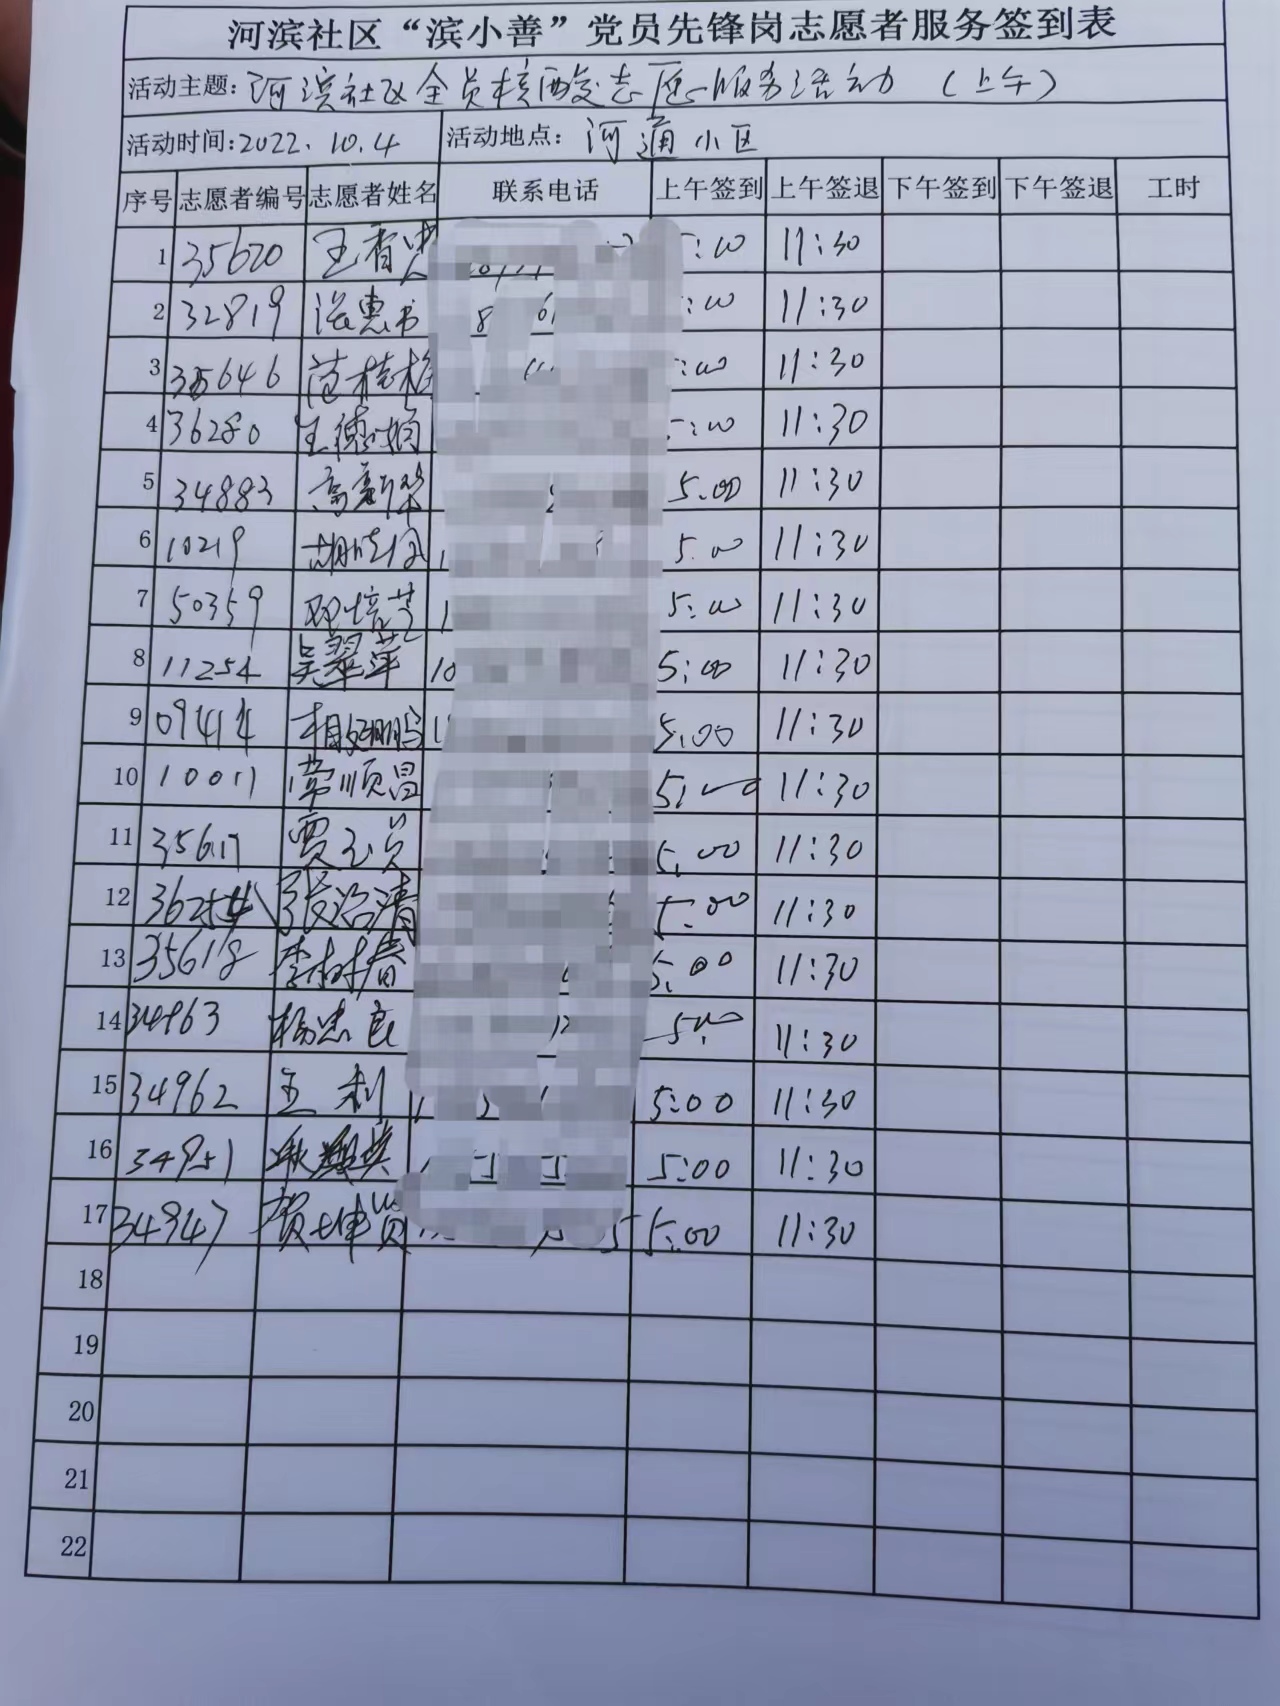 河滨社区“滨小善”党员先锋岗志愿者服务签到表
活动主题：河滨社区全员核酸志愿服务活动（上午）
活动时间：2022.10.4 活动地点：河通小区
序号 志愿者编号 志愿者姓名 联系电话 上午签到 上午签退 下午签到 下午签退 工时
1 35620 王香 :00 11:30
2 32819 惠书 :00 11:30
3 35646 范桂梅 :00 11:30
4 36280 王德娟 5:00 11:30
5 34883 高新华 5:00 11:30
6 10219 胡 5:00 11:30
7 50359 邓培芝 5:00 11:30
8 11254 吴翠萍 5:00 11:30
9 09414 鹏 5:00 11:30
10 10011 常顺昌 5:00 11:30
11 35617 贾玉贞 5:00 11:30
12 36254 张治清 5:00 11:30
13 35618 李树春 5:00 11:30
14 34963 杨忠良 5:00 11:30
15 34962 王利 5:00 11:30
16 34951 英 5:00 11:30
17 34947 贺坤贤 5:00 11:30
18
19
20
21
22